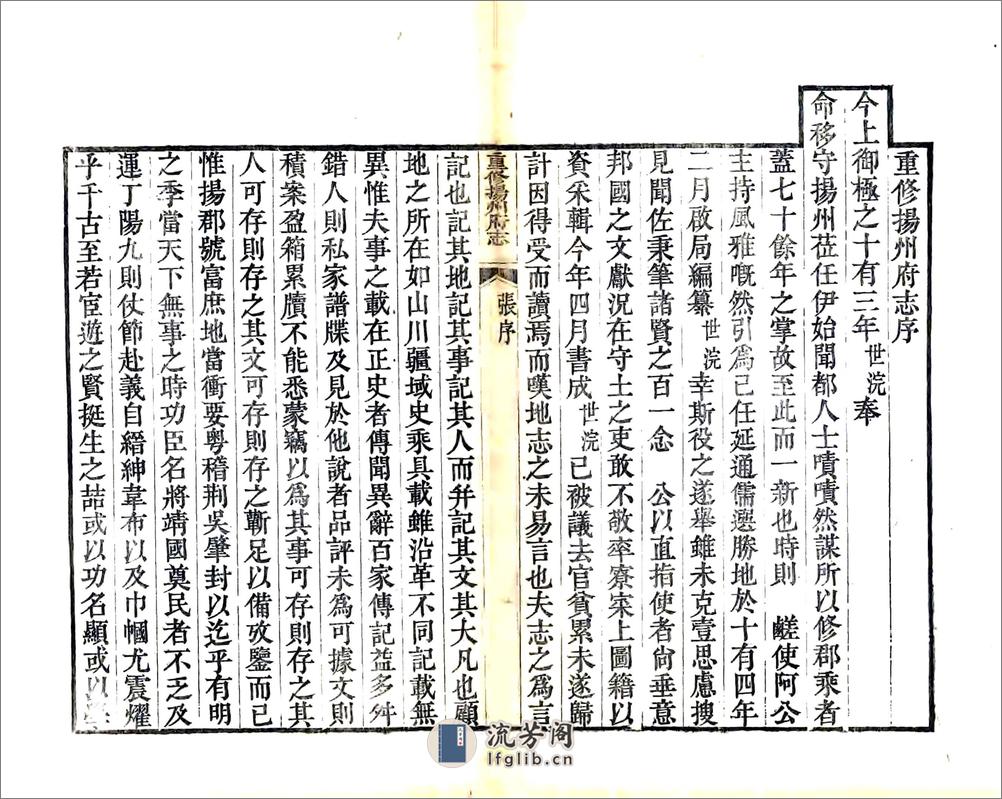 重修揚州府志序
今上御極之十有三年世浣奉
命移守揚州莅任伊始聞都人士嘖嘖然謀所以修郡乘者
蓋七十餘年之掌故至此而一新也時則 鹺使阿公
主持風雅嘅然引爲己任延通儒選勝地於十有四年
二月啟局編纂世浣幸斯役之遂舉雖未克壹思慮搜
見聞佐秉筆諸賢之百一念 公以直指使者尙垂意
邦國之文獻況在守土之吏敢不敬率寮寀上圖籍以
資采輯今年四月書成世浣已被議去官貧累未遂歸
計因得受而讀焉而嘆地志之未易言也夫志之爲言
重修揚州府志
張序
記也記其地記其事記其人而幷記其文其大凡也顧
地之所在如山川疆域史乘具載雖沿革不同記載無
異惟夫事之載在正史者傳聞異辭百家傳記益多舛
錯人則私家譜牒及見於他說者品評未爲可據文則
積案盈箱累牘不能悉蒙竊以爲其事可存則存之其
人可存則存之其文可存則存之蘄足以備攷鑒而已
惟揚郡號富庶地當衝要粵稽荆吳肇封以迄乎有明
之季當天下無事之時功臣名將靖國奠民者不乏及
運丁陽九則仗節赴義自縉紳韋布以及巾幗尤震耀
乎千古至若宦遊之賢挺生之喆或以功名顯或以學
流芳阁
lfglib.cn